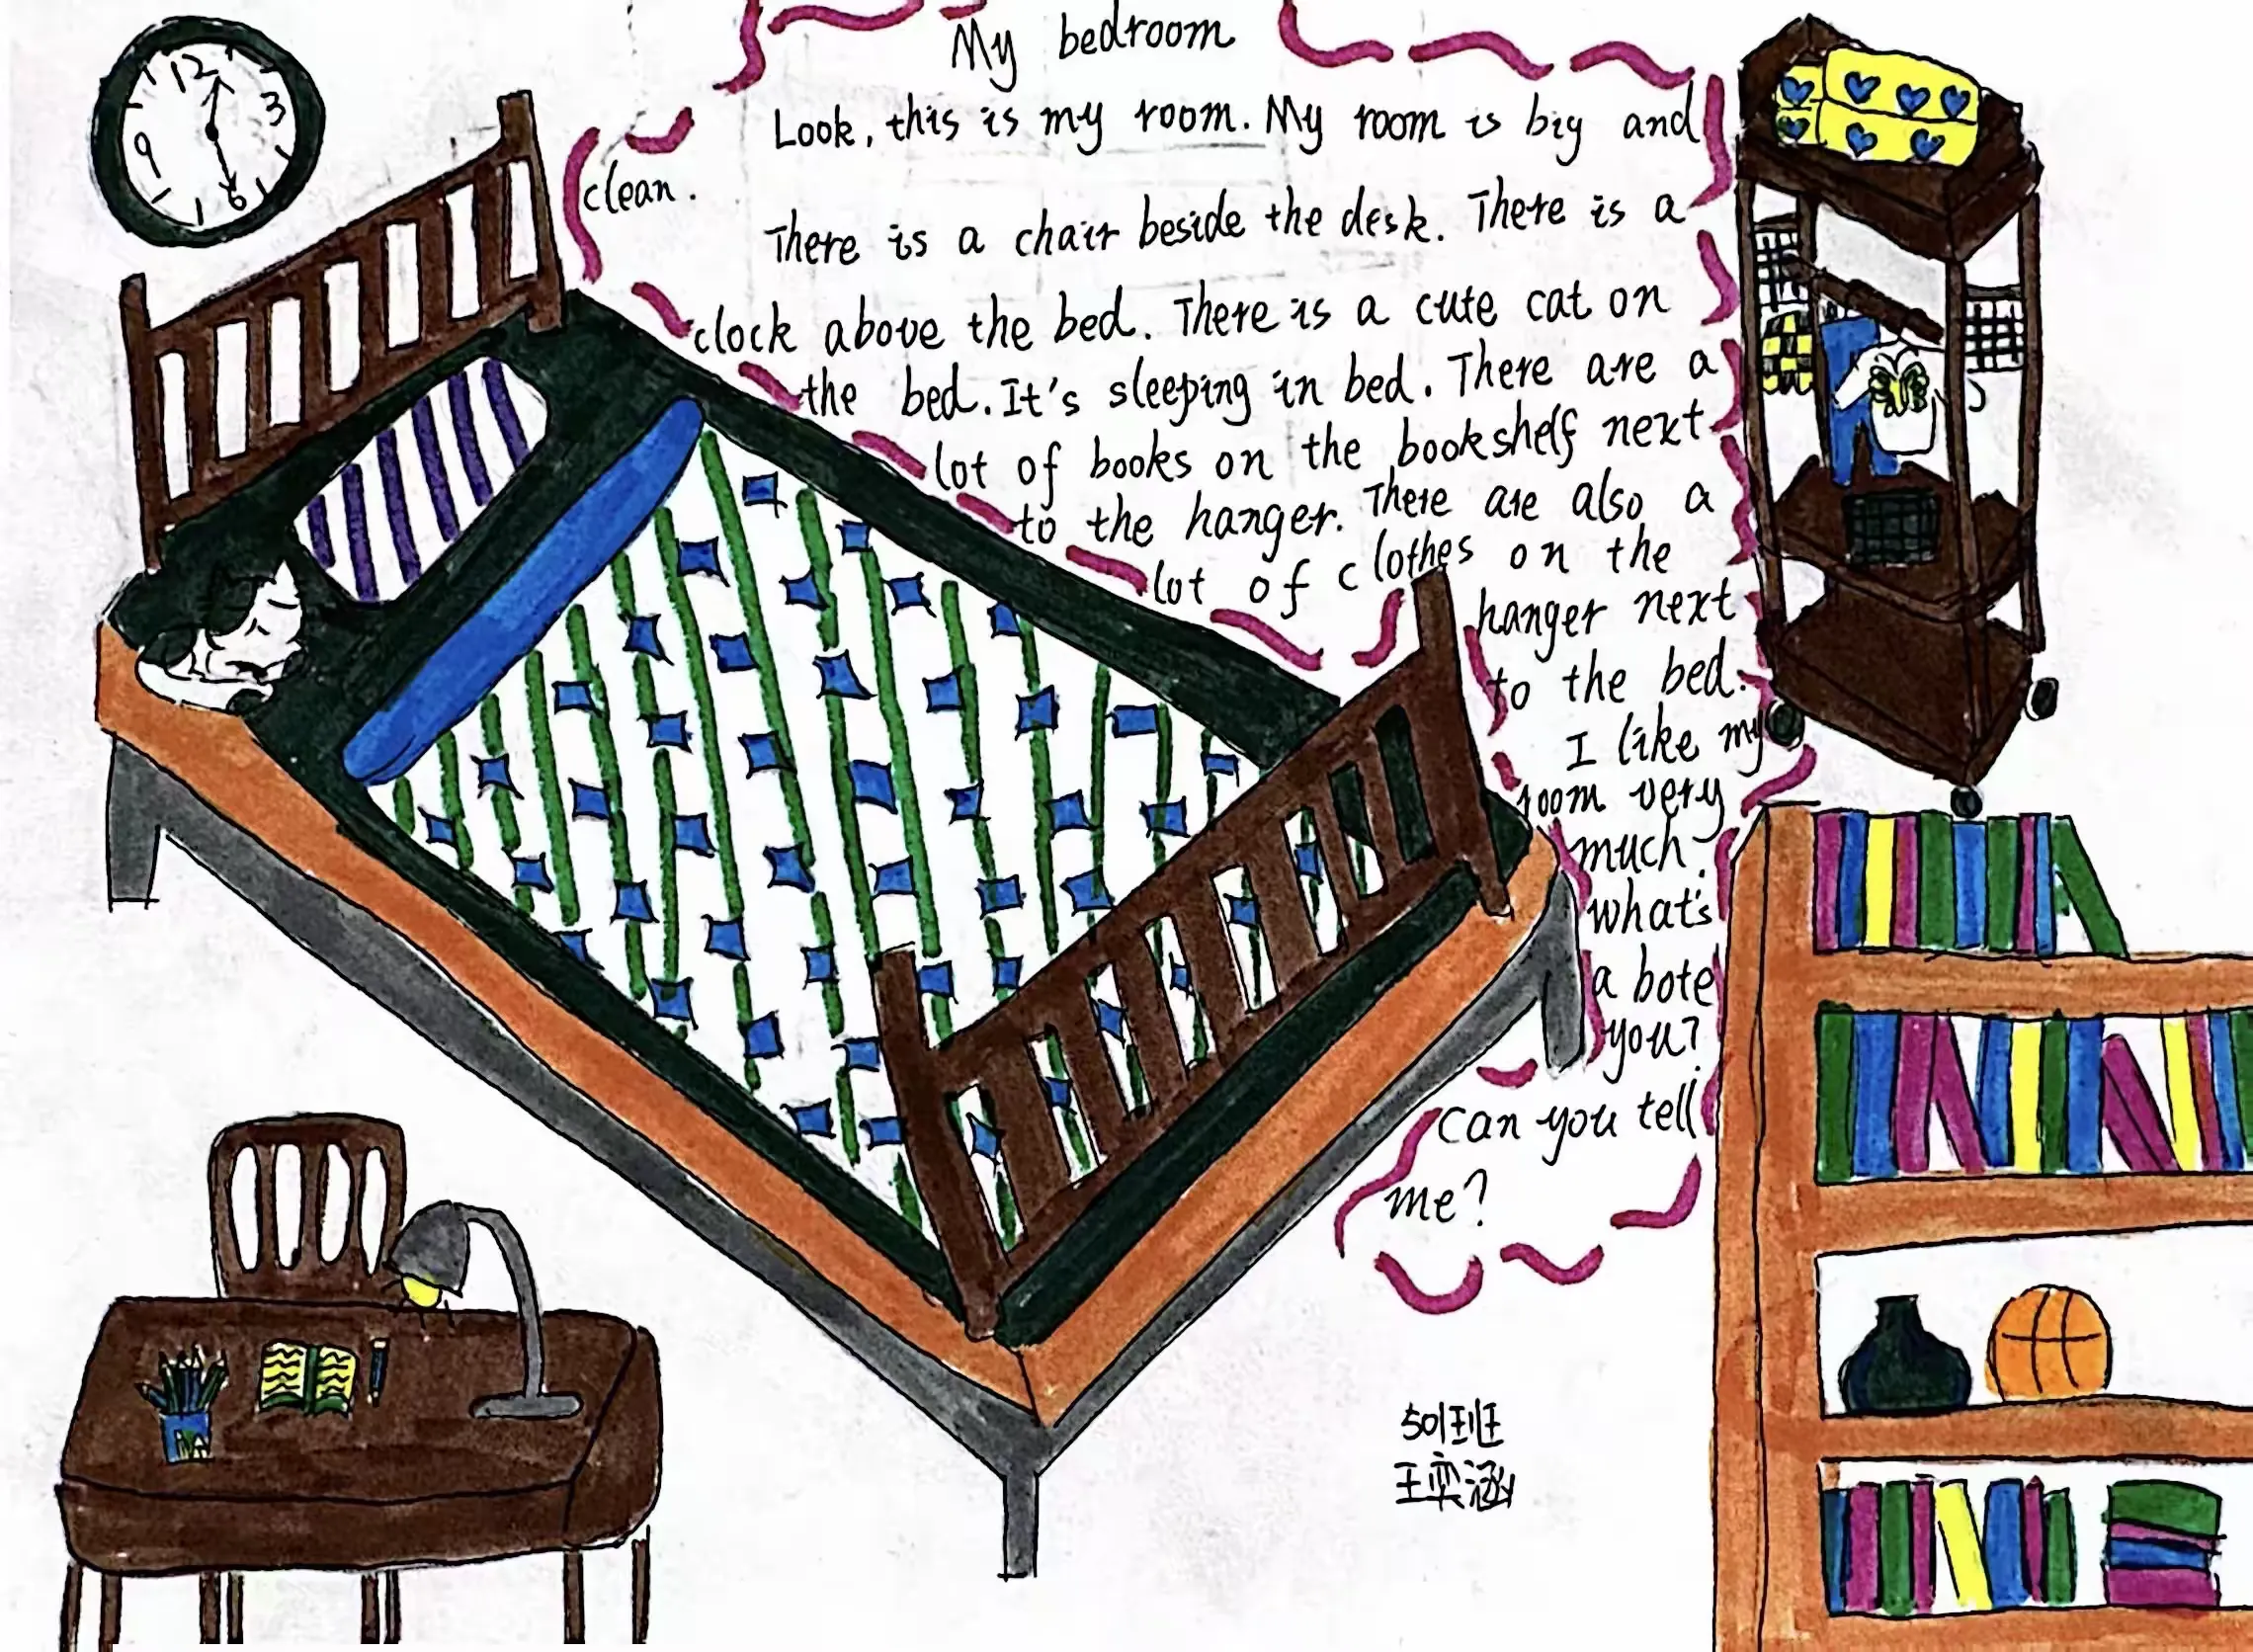 12
3
9
6
My bedroom
Look, this is my room. My room is big and
clean.
There is a chair beside the desk. There is a
clock above the bed. There is a cute cat on
the bed. It's sleeping in bed. There are a
lot of books on the bookshelf next
to the hanger. There are also a
lot of clothes on the
hanger next
to the bed.
I like my
room very
much.
what's
a bote
you?
can you tell
me?
501班
王奕涵